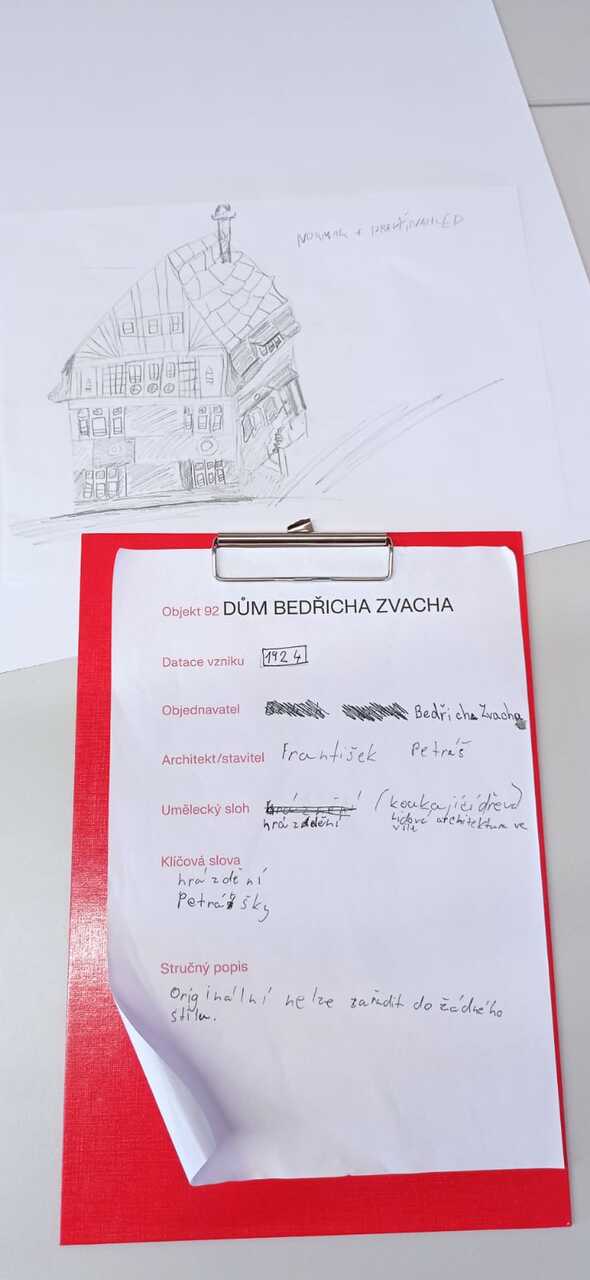 Objekt 92 DŮM BEDŘICHA ZVACHA
Datace vzniku 1924
Objednavatel Bedřicha Zvacha
Architekt/stavitel František Petráš
Umělecký sloh hrázdění (koukající dřevo)
hrázddění lidová architektura ve
vile
Klíčová slova
hrázdění
Petrášky
Stručný popis
Originální nelze zařadit do žádného
stilu.